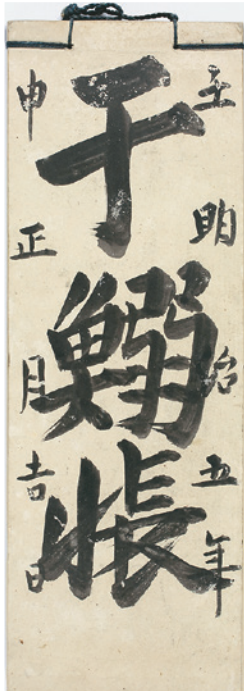 壬明治五年
干鰯帳
申正月吉日